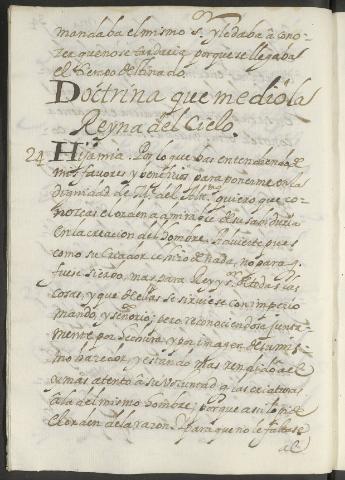 mandaba el mismo s.r y le daba à cono-
zer que no se tardaria porque se llegaba
el tiempo destinado.
Doctrina que me diò la
Reyna del Cielo.
24 Hija mia. Por lo que vas entendiendo de
mis favores y beneficios para ponerme en la
dignidad de M.e del Altis.mo quiero que co-
nozcas el orden admirable de su sabiduria
en la creacion del hombre. Advierte pues
como su Criador le hizo de nada, no para q.
fuese siervo, mas para Rey y s.r de todas las
cosas, y que de ellas se sirviese con imperio
mando, y señorio; pero reconociendose junta-
mente por hechura, y por imagen de su mis-
mo hazedor, y estando mas rendido à el
y mas atento à su voluntad q. las criaturas
à la del mismo hombre; porque asi lo pide
el orden de la razon. Y para que no le faltase
al